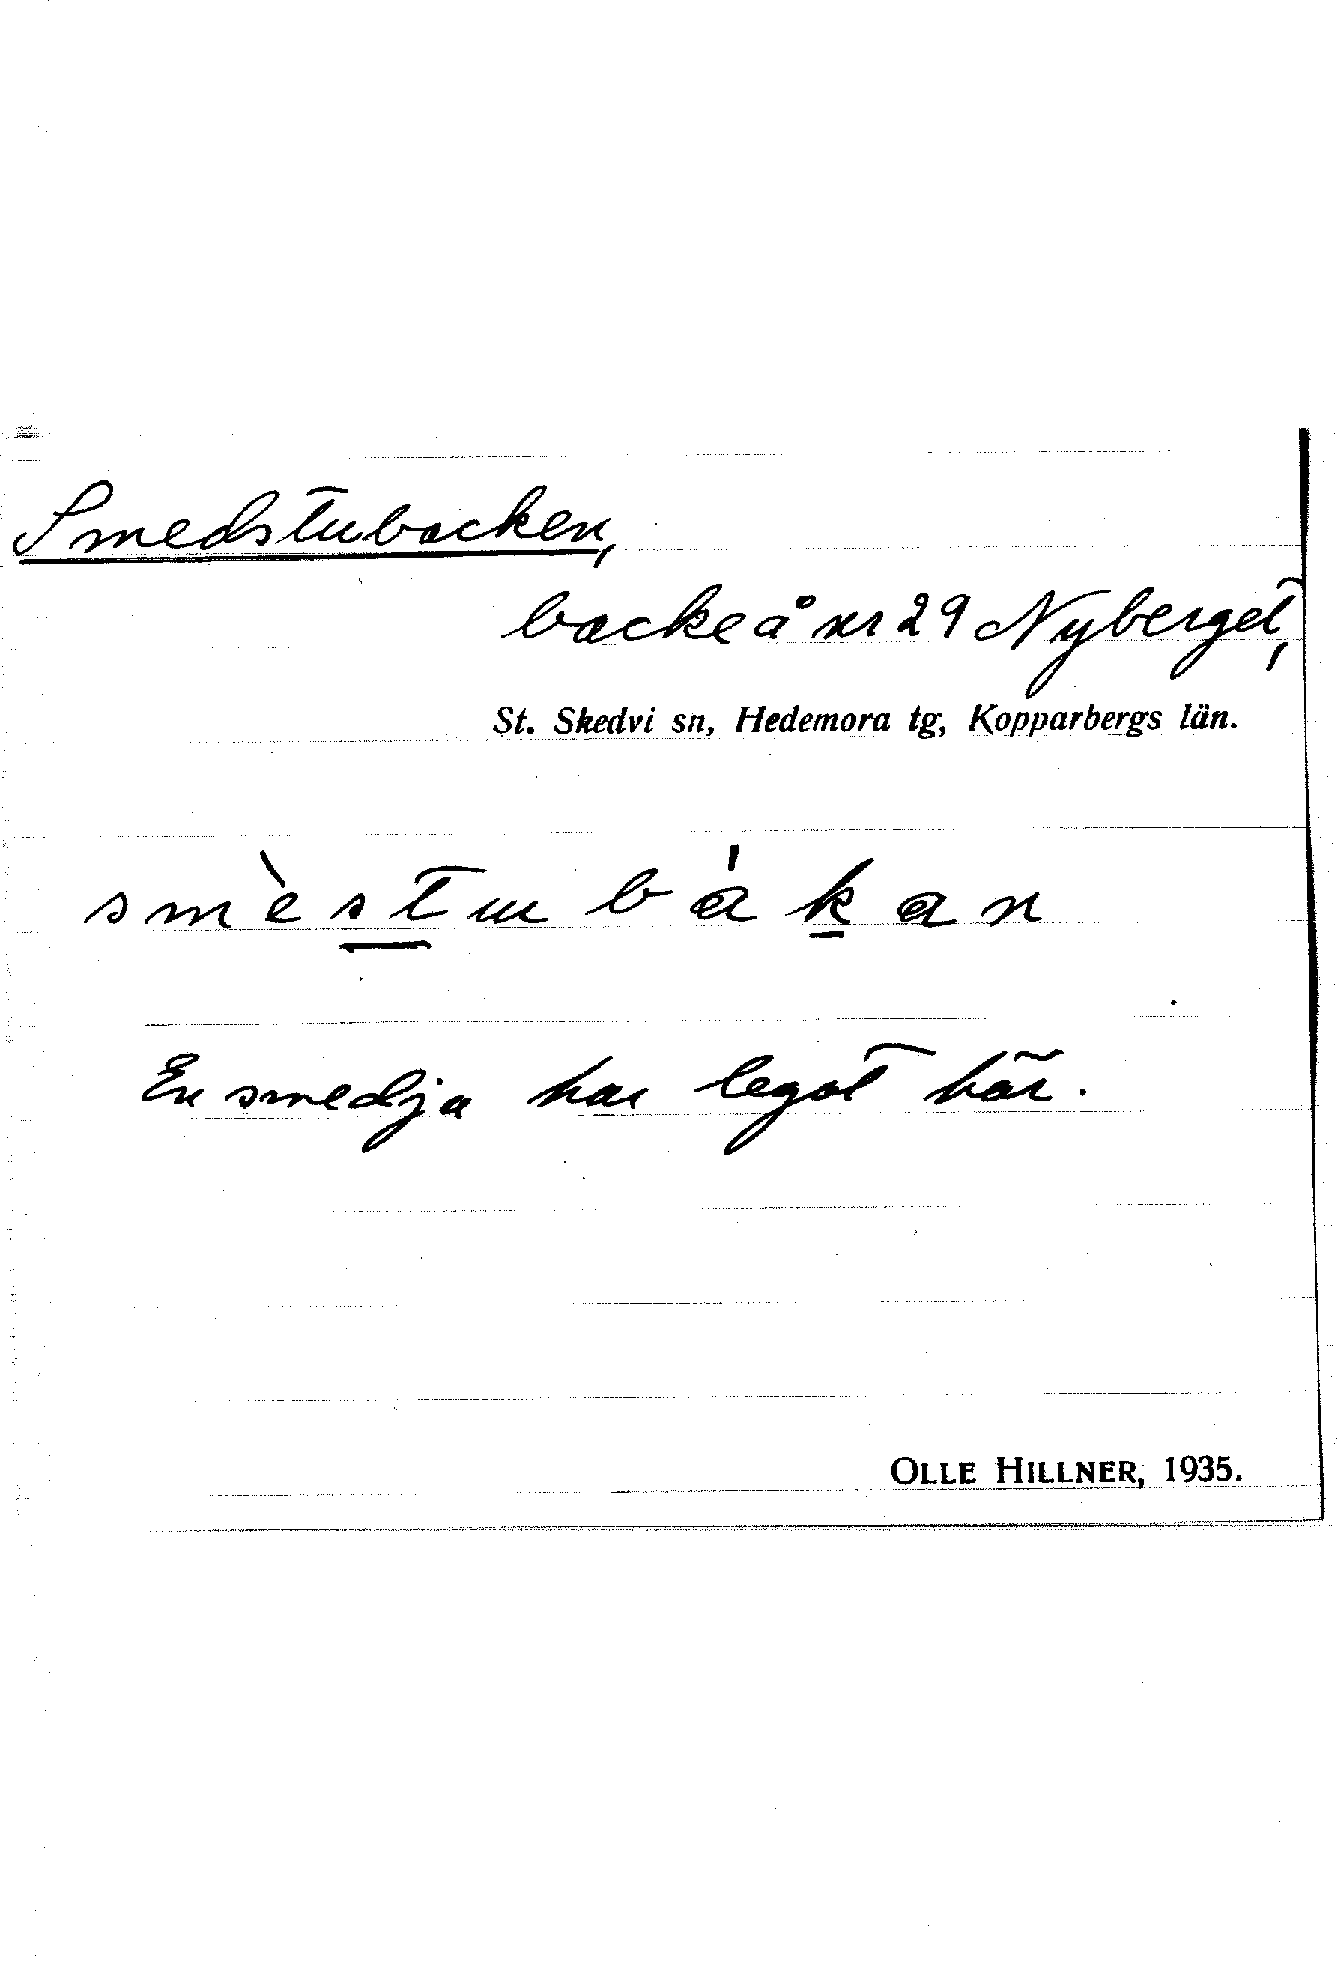 Smedstubacken,
backe å nr 29 Nyberget,
St. Skedvi sn, Hedemora tg, Kopparbergs län.
smèstubákan
En smedja har legat här.
OLLE HILLNER, 1935.